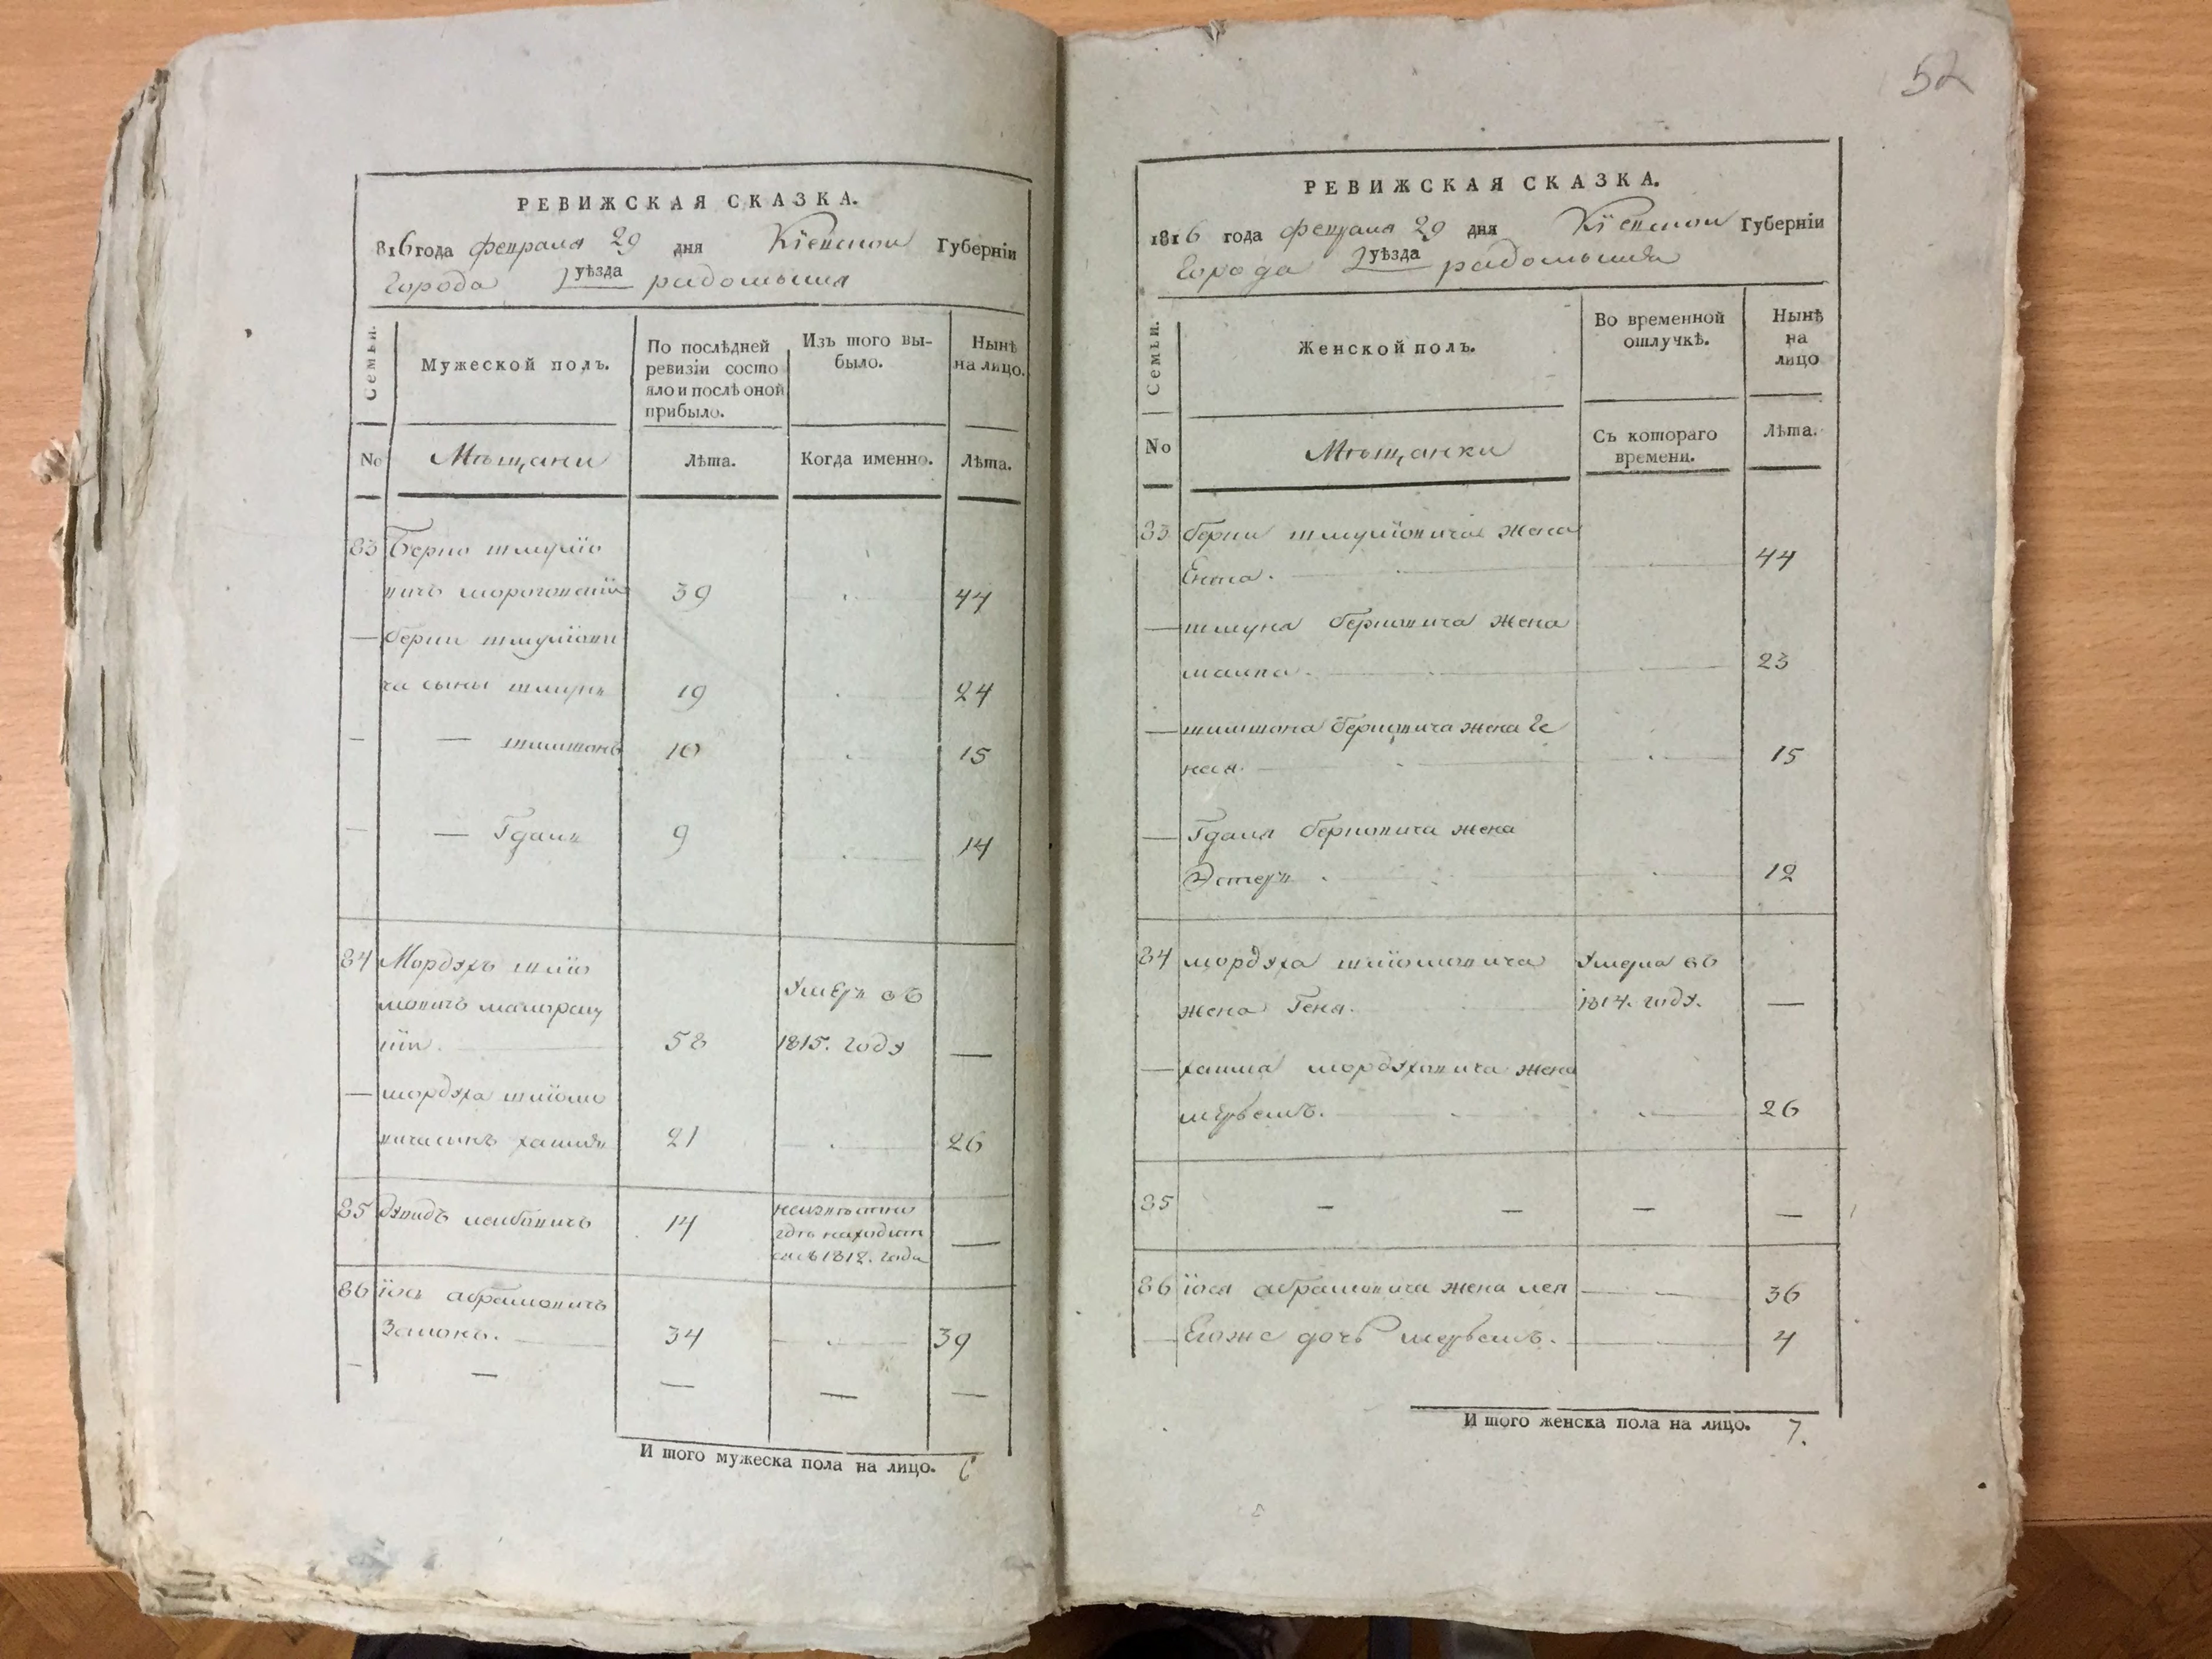 РЕВИЖСКАЯ СКАЗКА.
816 года февраля 29 дня Кіевской Губерніи
Города уѣзда радомысля
Семьи.
Мужеской полъ.
По послѣдней
ревизіи состо
яло и послѣ оной
прибыло.
Изъ того вы-
было.
Нынѣ
на лицо.
No
Мѣщани
Лѣта.
Когда именно.
Лѣта.
83 Берко шмуліо
вичъ 39 44
— берки шмуліови
ча сыны шмуль 19 24
— — шимшонъ 10 15
— — Гдаль 9 14
84 Мордухъ шліо
мовичъ
58 Умеръ въ
1815. году —
— мордуха шліомо
вича сынъ хаимъ 21 26
85 Дувидъ лейбовичъ 14 неизвѣстно
гдѣ находит
ся съ 1812. года —
86 іось абрамовичъ
Залонъ. 34 39
— — — — —
И того мужеска пола на лицо. 6
52
РЕВИЖСКАЯ СКАЗКА.
1816 года февраля 29 дня Кіевской Губерніи
Города уѣзда радомысля
Семьи.
Женской полъ.
Во временной
отлучкѣ.
Нынѣ
на
лицо
No
Мѣщанки
Съ котораго
времени.
Лѣта.
83 берки шмуліовича жена
Ента. 44
— шмуля берковича жена
малка. 23
— шимшона берковича жена Че
нася. 15
— Гдаля берковича жена
Эстеръ 12
84 мордуха шліомовича
жена Геня.
Умерла въ
1814. году. —
— хаима мордуховича жена
26
85 — — — —
86 іося абрамовича жена лея 36
Егоже дочь 4
И того женска пола на лицо. 7.